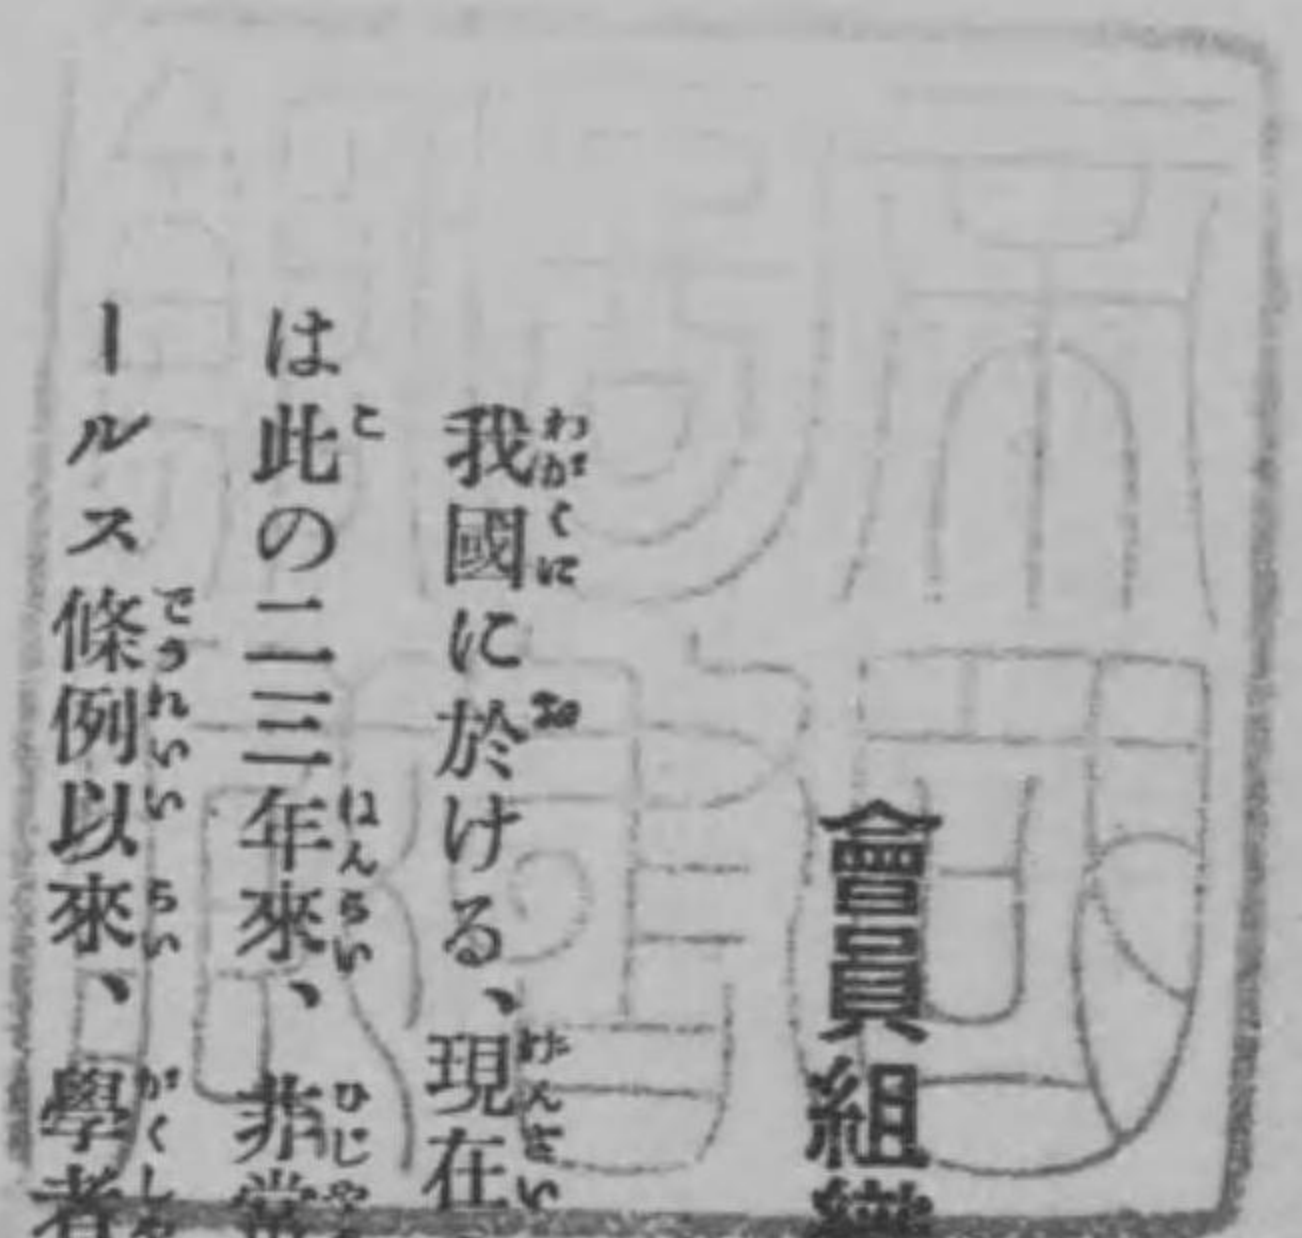 會員組織
我國に於ける、現在
は此の二三年來、非常
ールス條例以來、學者